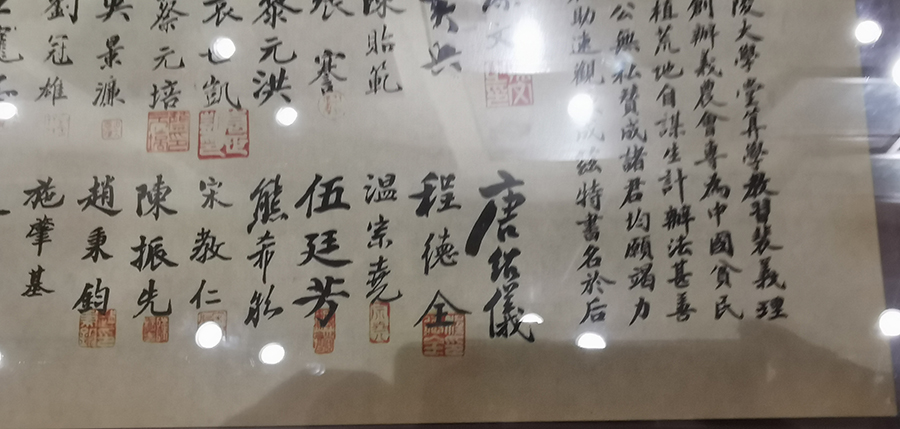 陵大學堂算學教習裴義理
創辦義農會專為中國貧民
植荒地自謀生計辦法甚善
公無私贊成諸君均願竭力
助速觀成茲特書名於后
唐紹儀
黃興
程德全
陳貽範
溫宗堯
張謇
伍廷芳
黎元洪
熊希齡
袁世凱
宋教仁
蔡元培
陳振先
吳景濂
趙秉鈞
劉冠雄
施肇基